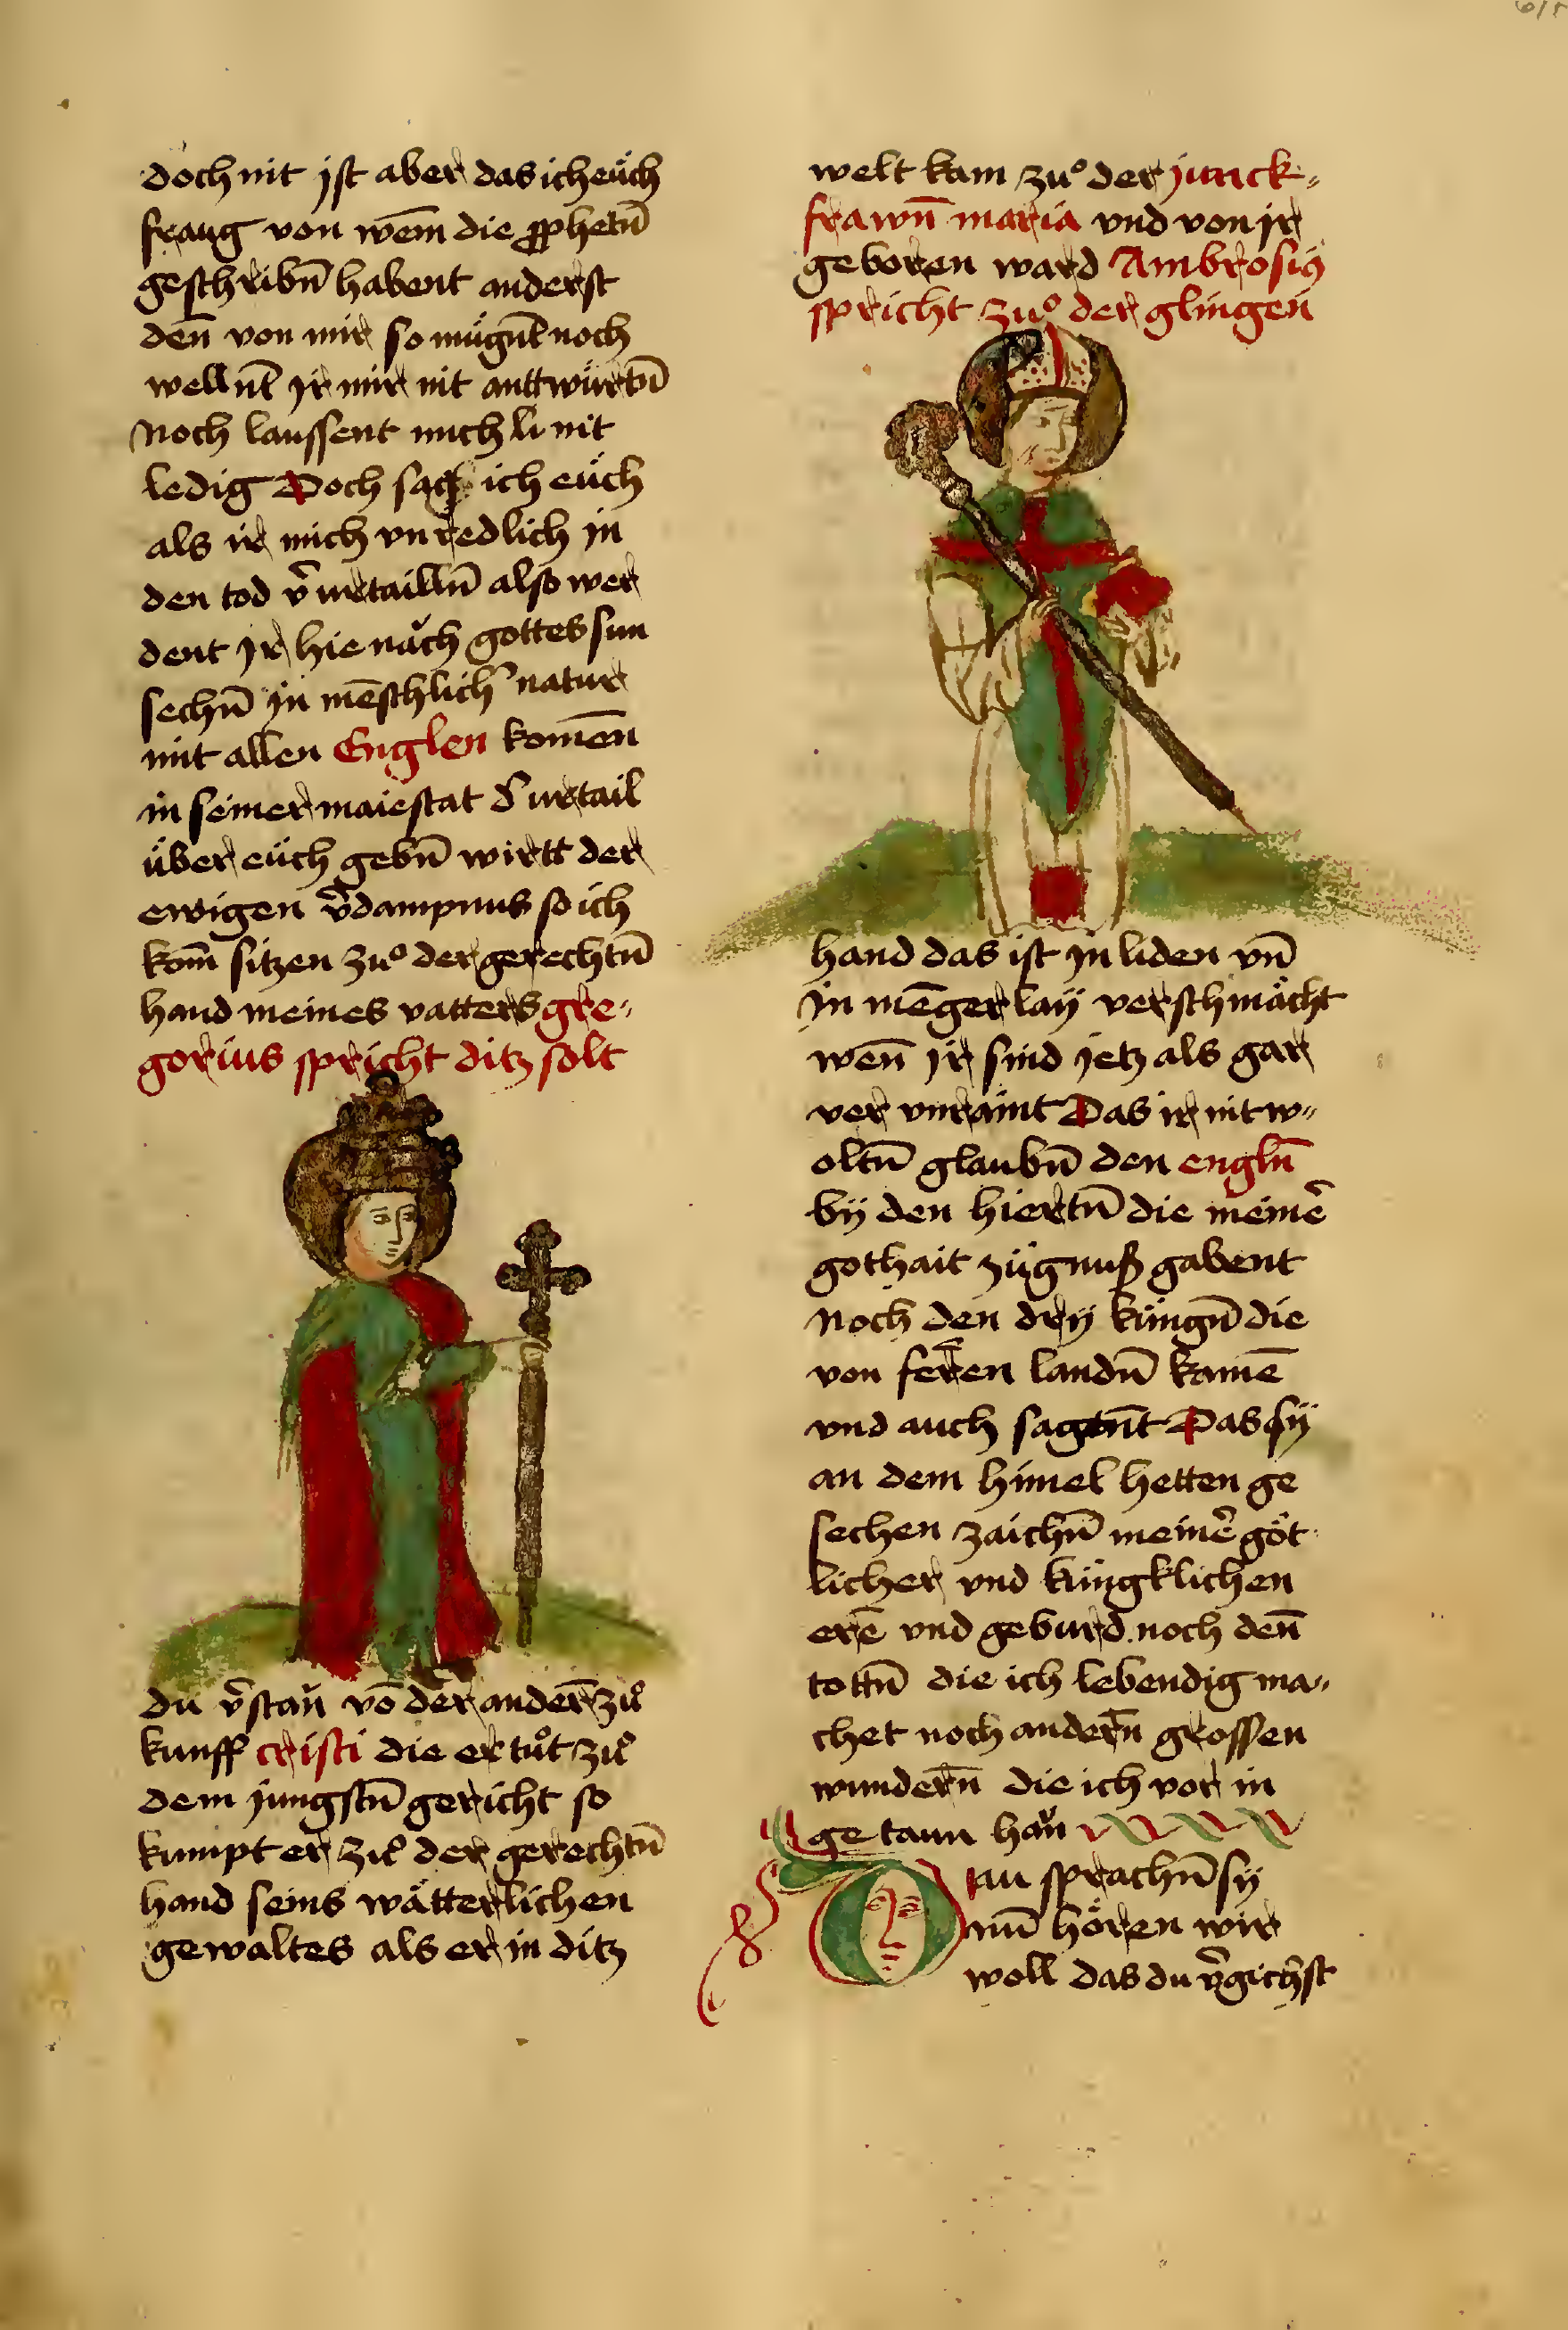 doch nit jst aber das ich eüch
fraug von wem̄ die ꝓphetn̄
geschribn̄ habent anderst
den̄ von mir so mügn̄t noch
welln̄t jr mir nit anttwürtn̄
noch laussent mich li nit
ledig Doch sag ich eüch
als ir mich vnredlich jn
den tod v̄urtailln̄ also wer
dent jr hie nǎch gottes sun
sechn̄ jn mēschlichr̄ natur
mit allen Englen komen̄
in seiner maiestat d̄ urtail
über eüch gebn̄ wirtt der
ewigen v̄dampnus so ich
kom̄ sitzen zuͦ der gerechtn̄
hand meines vatters gre⸗
gorius spricht ditz solt
du v̄stan̆ vō der ander̄ zuͦ
kunff cristi die er tuͦt zuͦ
dem jungstn̄ gericht so
kumpt er zuͦ der gerechtn̄
hand seins wätterlichen
gewaltes als er in ditz
welt kam zuͦ der junck⸗
frawn̄ maria vnd von jr
geboren ward Ambrosiꝰ
spricht zuͦ der glingen
hand das ist jn liden vn̄
jn mēgerlaÿ verschmächt
wen̄ jr sind jetz als gar
ver vnraint Das ir nit w⸗
oltn̄ glaubn̄ den engln̄
bÿ den hiertn̄ die meinē
gothait zügnuß gabent
noch den drÿ küngn̄ die
von fer̄en landn̄ kamē
vnd auch sagtn̄t Das sÿ
an dem himel hetten ge
sechen zaichn̄ meinē göt
licher vnd küngklichen
erē vnd geburd noch den̄
tottn̄ die ich lebendig ma⸗
chet nochander̄n grossen
wunder̄n die ich vor in
ge taun hăn
Du sprachn̄ sÿ
nun̄ hören wir
woll das du v̄gichst